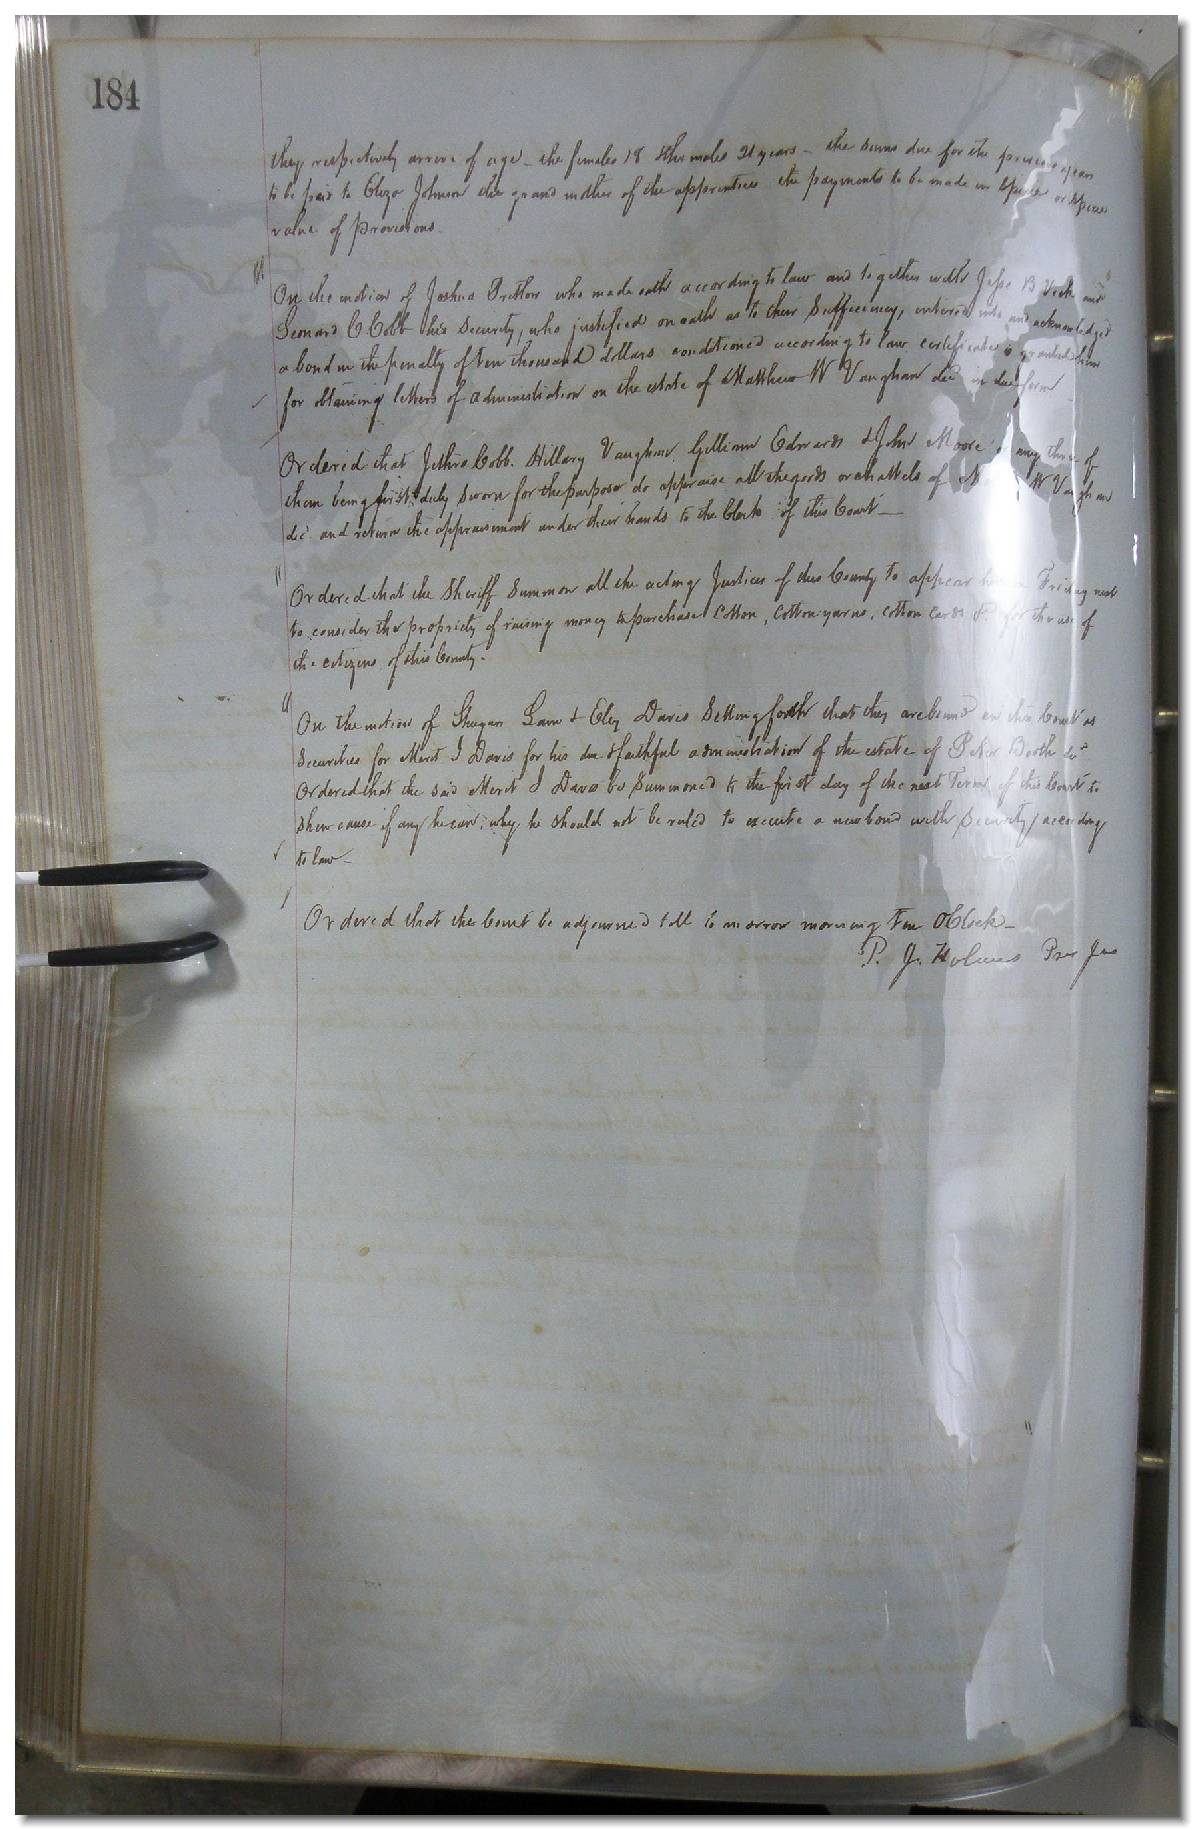 184
they respectively arrive of age - the females 18 & the males 21 years - the sums due for the previous years
to be paid to Eliza Johnson the grand mother of the apprentices the payments to be made in Specie or Specie
value of provisions.
On the motion of Joshua Pretlow who made oath according to law and together with Jesse B Vick and
Leonard C Cobb his security, who justified on oath as to their Sufficiency, entered into and acknowledged
a bond in the penalty of ten thousand dollars conditioned according to law certificate is granted him
for obtaining letters of administration on the estate of Matthew W Vaughan dec in due form
Ordered that Jethro Cobb. Hillary Vaughan Edwards & John Moore or any three of
them being first duly sworn for the purpose do appraise all the goods or chattels of W Vaughan
dec and return the appraisment under their hands to the Clerk of this Court -
Ordered that the Sheriff Summon all the acting Justices of this County to appear Friday next
to consider the propriety of raising money to purchase Cotton, Cotton yarns, cotton cards & for the use of
the citizens of this County.
On the motion of Law & Davis Setting forth that they are bound in this Court as
Securities for Merit I Davis for his due & faithful administration of the estate of Peter Booth dec
Ordered that the said Merit I Davis be Summoned to the first day of the next Term of this Court to
Shew cause if any he can, why he should not be ruled to execute a new bond with Security according
to law -
Ordered that the Court be adjourned till to morrow morning ten OClock -
P. J. Holmes Pre Jus